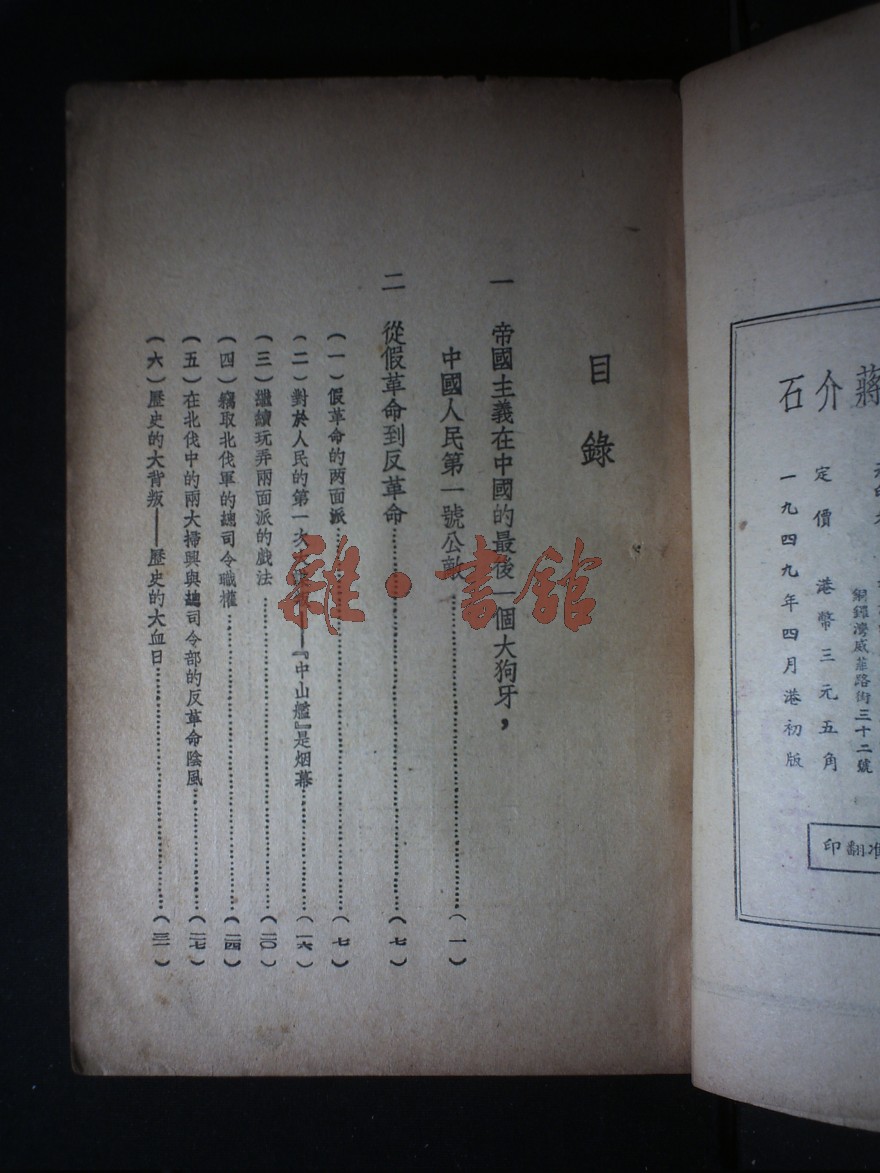 蔣介石
銅鑼灣威菲路街三十二號
定價 港幣三元五角
一九四九年四月港初版
翻印
目錄
一 帝國主義在中國的最後一個大狗牙，
中國人民第一號公敵……（一）
二 從假革命到反革命……（七）
（一）假革命的两面派……（七）
（二）對於人民的第一次大——『中山艦』是烟幕……（一六）
（三）繼續玩弄兩面派的戲法……（二〇）
（四）竊取北伐軍的總司令職權……（二四）
（五）在北伐中的兩大掃興與總司令部的反革命陰風……（二七）
（六）歷史的大背叛——歷史的大血日……（三一）
雜·書館